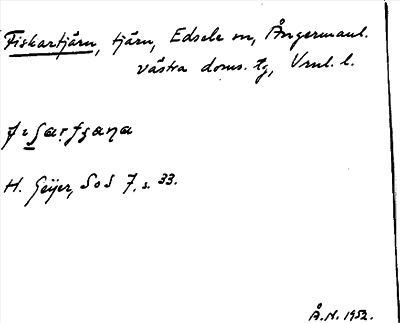 Fiskartjärn, tjärn, Edsele sn, Ångermanl.
västra doms. tg, Vrnl. l.
H. Geijer, SoS 7, s. 33.
Å.N. 1952.